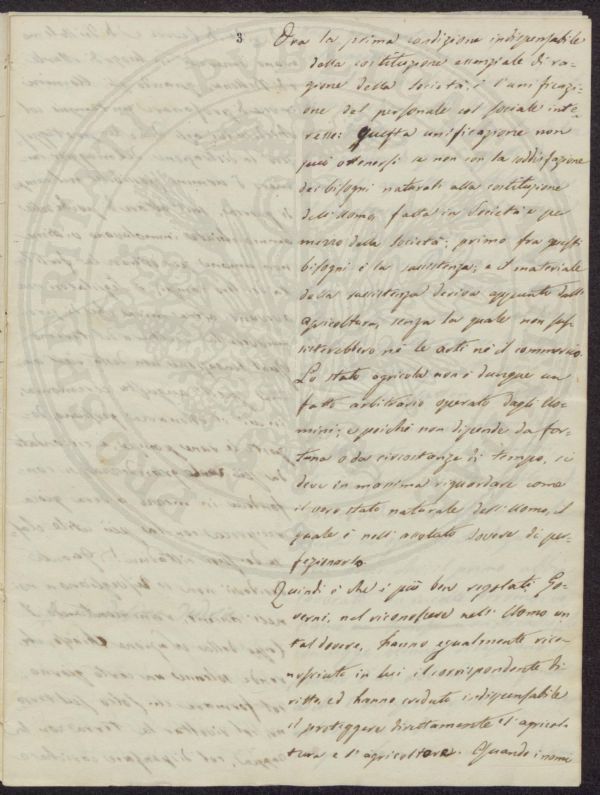 3
Ora la prima condizione indispensabile
dalla costituzione essenziale di ra-
gione della Società, è l'unificazi-
one del personale col sociale inte-
resse: questa unificazione non
può ottenersi se non con la soddisfazione
dei bisogni naturali alla costituzione
dell'Uomo, fatta in Società e per
mezzo della Società; primo fra questi
bisogni è la sussistenza; e il materiale
della sussistenza deriva appunto dall'
agricoltura, senza la quale non sus-
sisterebbero nè le arti nè il commercio.
Lo stato agricola non è dunque un
fatto arbitrario operato dagli Uo-
mini; e poichè non dipende da for-
tuna o da circostanze di tempo, si
deve in massima riguardare come
il vero stato naturale dell'Uomo, il
quale è nell'assoluto dovere di per-
fezionarlo.
Quindi è che i più ben regolati Go-
verni, nel riconoscere nell'Uomo un
tal dovere, hanno egualmente rico-
nosciuto in lui il corrispondente di-
ritto, ed hanno creduto indispensabile
il proteggere direttamente l'agricol-
tura e l'agricoltore. Quando i nomi